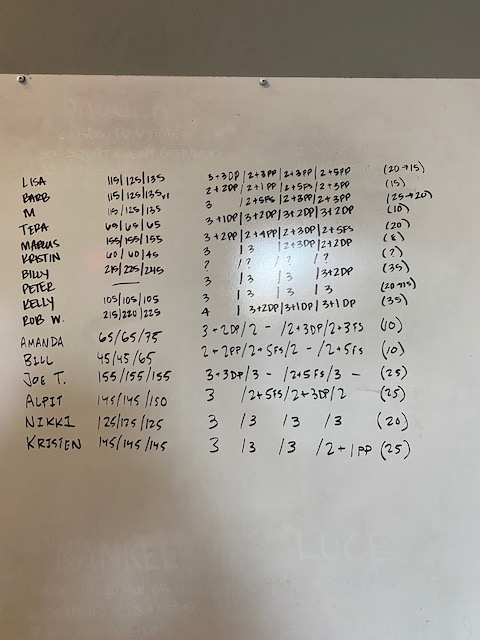 LISA 115/125/135 3+3DP/2+3PP/2+3PP/2+5PP (20→15)
BARB 115/125/135+1 2+2DP/2+1PP/2+5FS/2+5PP (15)
M 115/125/135 3 /2+5FS/2+3PP/2+3PP (25→20)
TERA 60/65/65 3+1DP/3+2DP/3+2DP/3+2DP (10)
MARCUS 155/155/155 3+2PP/2+4PP/2+3DP/2+5FS (20)
KRISTIN 40/40/45 3 /3 /2+3DP/2+2DP (8)
BILLY 215/225/245 ? /? /? /? (?)
PETER — 3 /3 /3 /3+2DP (35)
KELLY 105/105/105 3 /3 /3 /3 (20→15)
ROB W. 215/220/225 4 /3+2DP/3+1DP/3+1DP (35)
AMANDA 65/65/75 3-2DP/2 - /2+3DP/2+3FS (10)
BILL 45/45/65 2+2PP/2+5FS/2 - /2+5FS (10)
JOE T. 155/155/155 3+3DP/3 - /2+5FS/3 - (25)
ALPIT 145/145/150 3 /2+5FS/2+3DP/2 (25)
NIKKI 125/175/125 3 /3 /3 /3 (20)
KRISTEN 145/145/145 3 /3 /3 /2+1PP (25)
"KANKEL LUCE